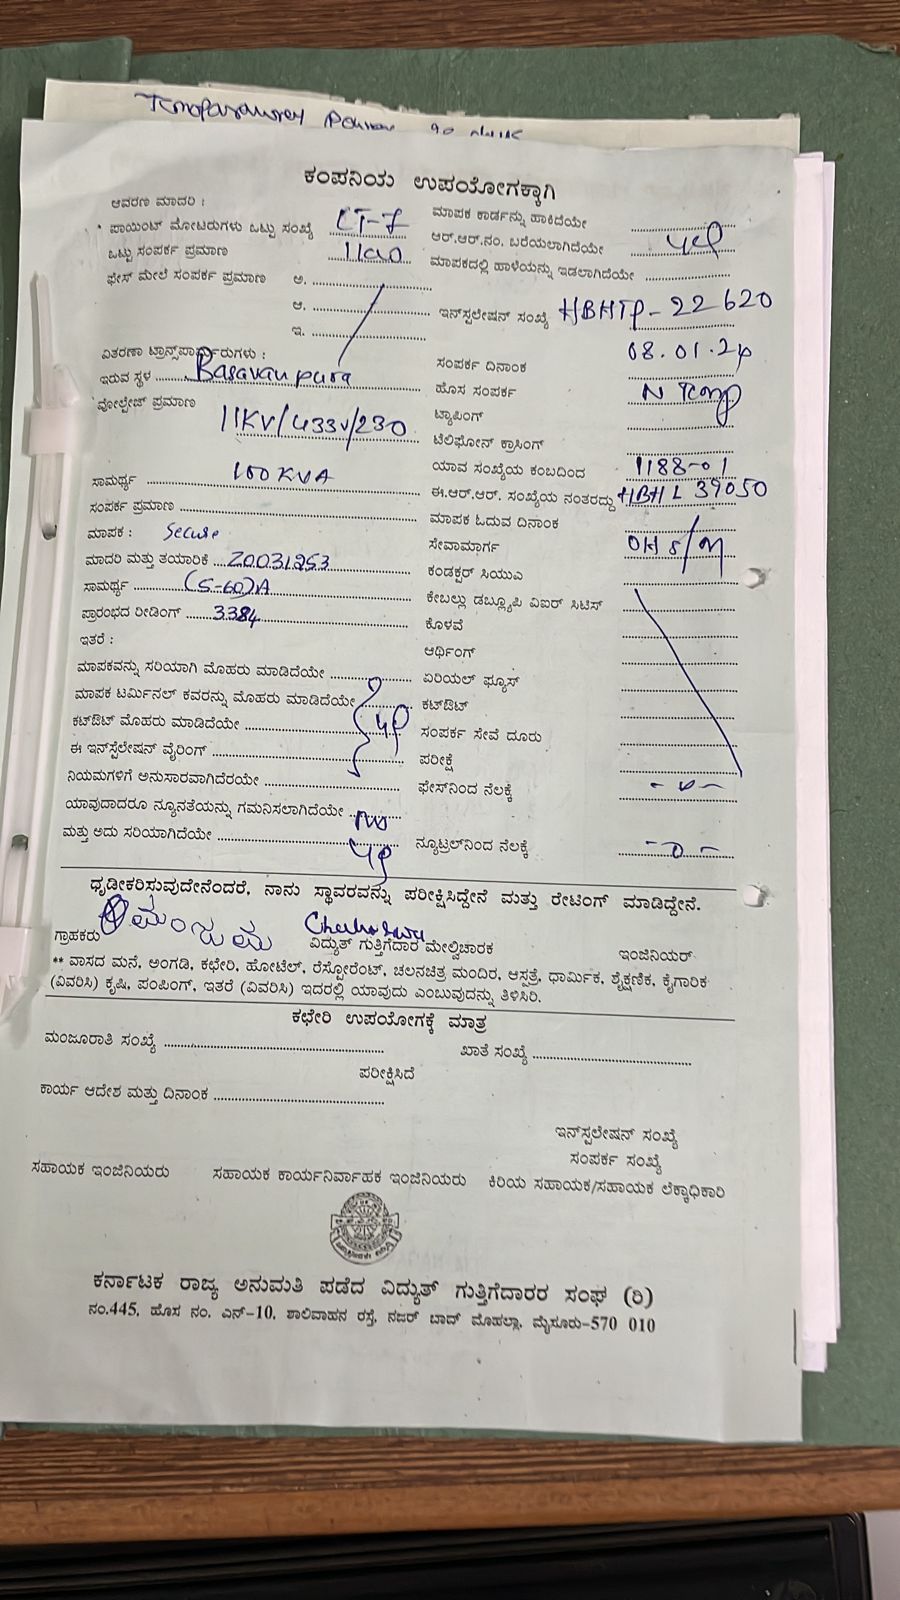 Temporary Power 90 days
ಕಂಪನಿಯ ಉಪಯೋಗಕ್ಕಾಗಿ
ಆವರಣ ಮಾದರಿ :
ಮಾಪಕ ಕಾರ್ಡನ್ನು ಹಾಕಿದೆಯೇ
ಪಾಯಿಂಟ್ ಮೋಟರುಗಳು ಒಟ್ಟು ಸಂಖ್ಯೆ LT-7
ಆರ್.ಆರ್.ನಂ. ಬರೆಯಲಾಗಿದೆಯೇ
ಒಟ್ಟು ಸಂಪರ್ಕ ಪ್ರಮಾಣ
ಮಾಪಕದಲ್ಲಿ ಹಾಳೆಯನ್ನು ಇಡಲಾಗಿದೆಯೇ
ಫೇಸ್ ಮೇಲೆ ಸಂಪರ್ಕ ಪ್ರಮಾಣ ಅ.
ಆ.
ಇನ್‌ಸ್ಪಲೇಷನ್ ಸಂಖ್ಯೆ HBHTP-22620
ಇ.
ವಿತರಣಾ ಟ್ರಾನ್ಸ್‌ಫಾರ್ಮರುಗಳು :
ಸಂಪರ್ಕ ದಿನಾಂಕ 08.01.24
ಇರುವ ಸ್ಥಳ Basavanpura
ಹೊಸ ಸಂಪರ್ಕ
ವೋಲ್ಟೇಜ್ ಪ್ರಮಾಣ 11KV/433V/230
ಟ್ಯಾಪಿಂಗ್
ಟೆಲಿಫೋನ್ ಕ್ರಾಸಿಂಗ್
ಯಾವ ಸಂಖ್ಯೆಯ ಕಂಬದಿಂದ 1188-01
ಸಾಮರ್ಥ್ಯ 100KVA
ಈ.ಆರ್.ಆರ್. ಸಂಖ್ಯೆಯ ನಂತರದ್ದು HBHL 39050
ಸಂಪರ್ಕ ಪ್ರಮಾಣ
ಮಾಪಕ ಓದುವ ದಿನಾಂಕ
ಮಾಪಕ : Secure
ಸೇವಾಮಾರ್ಗ OH S/M
ಮಾದರಿ ಮತ್ತು ತಯಾರಿಕೆ Z0031253
ಕಂಡಕ್ಟರ್ ಸಿಯುಎ
ಸಾಮರ್ಥ್ಯ (5-60)A
ಕೇಬಲ್ಲು ಡಬ್ಲ್ಯೂಪಿ ವಿಐರ್ ಸಿಟಿಸ್
ಪ್ರಾರಂಭದ ರೀಡಿಂಗ್ 3384
ಕೊಳವೆ
ಇತರೆ :
ಆರ್ಥಿಂಗ್
ಮಾಪಕವನ್ನು ಸರಿಯಾಗಿ ಮೊಹರು ಮಾಡಿದೆಯೇ
ಏರಿಯಲ್ ಫ್ಯೂಸ್
ಮಾಪಕ ಟರ್ಮಿನಲ್ ಕವರನ್ನು ಮೊಹರು ಮಾಡಿದೆಯೇ
ಕಟ್‌ಔಟ್
ಕಟ್‌ಔಟ್ ಮೊಹರು ಮಾಡಿದೆಯೇ
ಸಂಪರ್ಕ ಸೇವೆ ದೂರು
ಈ ಇನ್‌ಸ್ಟೆಲೇಷನ್ ವೈರಿಂಗ್
ಪರೀಕ್ಷೆ
ನಿಯಮಗಳಿಗೆ ಅನುಸಾರವಾಗಿದೆರಯೇ
ಫೇಸ್‌ನಿಂದ ನೆಲಕ್ಕೆ -0-
ಯಾವುದಾದರೂ ನ್ಯೂನತೆಯನ್ನು ಗಮನಿಸಲಾಗಿದೆಯೇ No
ಮತ್ತು ಅದು ಸರಿಯಾಗಿದೆಯೇ
ನ್ಯೂಟ್ರಲ್‌ನಿಂದ ನೆಲಕ್ಕೆ -0-
ಧೃಡೀಕರಿಸುವುದೇನೆಂದರೆ, ನಾನು ಸ್ಥಾವರವನ್ನು ಪರೀಕ್ಷಿಸಿದ್ದೇನೆ ಮತ್ತು ರೇಟಿಂಗ್ ಮಾಡಿದ್ದೇನೆ.
ಮಂಜುಮ
ಗ್ರಾಹಕರು ವಿದ್ಯುತ್ ಗುತ್ತಿಗೆದಾರ ಮೇಲ್ವಿಚಾರಕ ಇಂಜಿನಿಯರ್
** ವಾಸದ ಮನೆ, ಅಂಗಡಿ, ಕಛೇರಿ, ಹೋಟೆಲ್, ರೆಸ್ಟೋರೆಂಟ್, ಚಲನಚಿತ್ರ ಮಂದಿರ, ಆಸ್ಪತ್ರೆ, ಧಾರ್ಮಿಕ, ಶೈಕ್ಷಣಿಕ, ಕೈಗಾರಿಕ
(ವಿವರಿಸಿ) ಕೃಷಿ, ಪಂಪಿಂಗ್, ಇತರೆ (ವಿವರಿಸಿ) ಇದರಲ್ಲಿ ಯಾವುದು ಎಂಬುವುದನ್ನು ತಿಳಿಸಿರಿ.
ಕಛೇರಿ ಉಪಯೋಗಕ್ಕೆ ಮಾತ್ರ
ಮಂಜೂರಾತಿ ಸಂಖ್ಯೆ ಖಾತೆ ಸಂಖ್ಯೆ
ಪರೀಕ್ಷಿಸಿದೆ
ಕಾರ್ಯ ಆದೇಶ ಮತ್ತು ದಿನಾಂಕ
ಇನ್‌ಸ್ಪಲೇಷನ್ ಸಂಖ್ಯೆ
ಸಂಪರ್ಕ ಸಂಖ್ಯೆ
ಸಹಾಯಕ ಇಂಜಿನಿಯರು ಸಹಾಯಕ ಕಾರ್ಯನಿರ್ವಾಹಕ ಇಂಜಿನಿಯರು ಕಿರಿಯ ಸಹಾಯಕ/ಸಹಾಯಕ ಲೆಕ್ಕಾಧಿಕಾರಿ
ಕರ್ನಾಟಕ ರಾಜ್ಯ ಅನುಮತಿ ಪಡೆದ ವಿದ್ಯುತ್ ಗುತ್ತಿಗೆದಾರರ ಸಂಘ (ರಿ)
ನಂ.445, ಹೊಸ ನಂ. ಎನ್-10, ಶಾಲಿವಾಹನ ರಸ್ತೆ, ನಜರ್ ಬಾದ್ ಮೊಹಲ್ಲಾ, ಮೈಸೂರು-570 010